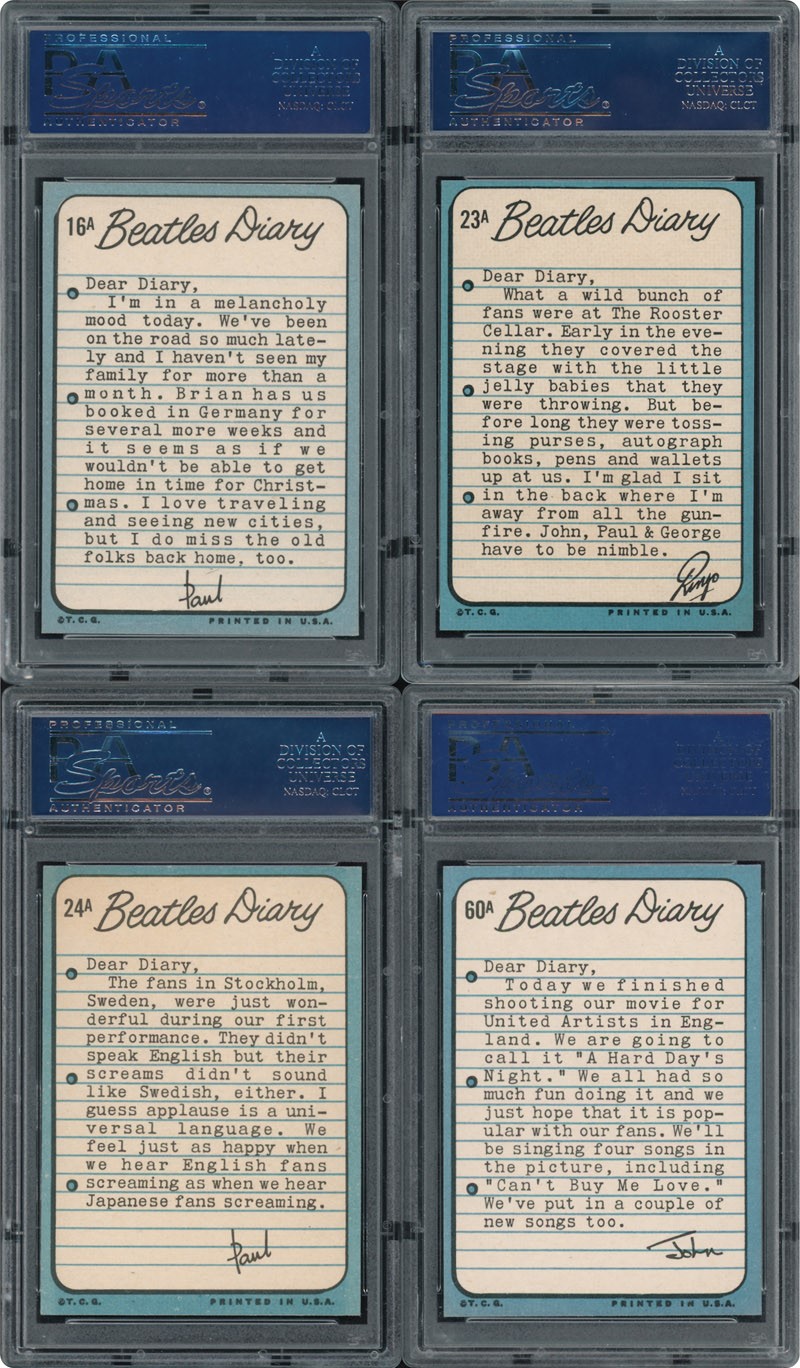 PROFESSIONAL
PSA
Sports®
AUTHENTICATOR
A
DIVISION OF
COLLECTORS
UNIVERSE
NASDAQ: CLCT
16A Beatles Diary
Dear Diary,
I'm in a melancholy
mood today. We've been
on the road so much late-
ly and I haven't seen my
family for more than a
month. Brian has us
booked in Germany for
several more weeks and
it seems as if we
wouldn't be able to get
home in time for Christ-
mas. I love traveling
and seeing new cities,
but I do miss the old
folks back home, too.
Paul
©T.C.G. PRINTED IN U.S.A.
PROFESSIONAL
PSA
Sports®
AUTHENTICATOR
A
DIVISION OF
COLLECTORS
UNIVERSE
NASDAQ: CLCT
23A Beatles Diary
Dear Diary,
What a wild bunch of
fans were at The Rooster
Cellar. Early in the eve-
ning they covered the
stage with the little
jelly babies that they
were throwing. But be-
fore long they were toss-
ing purses, autograph
books, pens and wallets
up at us. I'm glad I sit
in the back where I'm
away from all the gun-
fire. John, Paul & George
have to be nimble.
Ringo
©T.C.G. PRINTED IN U.S.A.
PROFESSIONAL
PSA
Sports®
AUTHENTICATOR
A
DIVISION OF
COLLECTORS
UNIVERSE
NASDAQ: CLCT
24A Beatles Diary
Dear Diary,
The fans in Stockholm,
Sweden, were just won-
derful during our first
performance. They didn't
speak English but their
screams didn't sound
like Swedish, either. I
guess applause is a uni-
versal language. We
feel just as happy when
we hear English fans
screaming as when we hear
Japanese fans screaming.
Paul
©T.C.G. PRINTED IN U.S.A.
PROFESSIONAL
PSA
Sports®
AUTHENTICATOR
A
DIVISION OF
COLLECTORS
UNIVERSE
NASDAQ: CLCT
60A Beatles Diary
Dear Diary,
Today we finished
shooting our movie for
United Artists in Eng-
land. We are going to
call it "A Hard Day's
Night." We all had so
much fun doing it and we
just hope that it is pop-
ular with our fans. We'll
be singing four songs in
the picture, including
"Can't Buy Me Love."
We've put in a couple of
new songs too.
John
©T.C.G. PRINTED IN U.S.A.